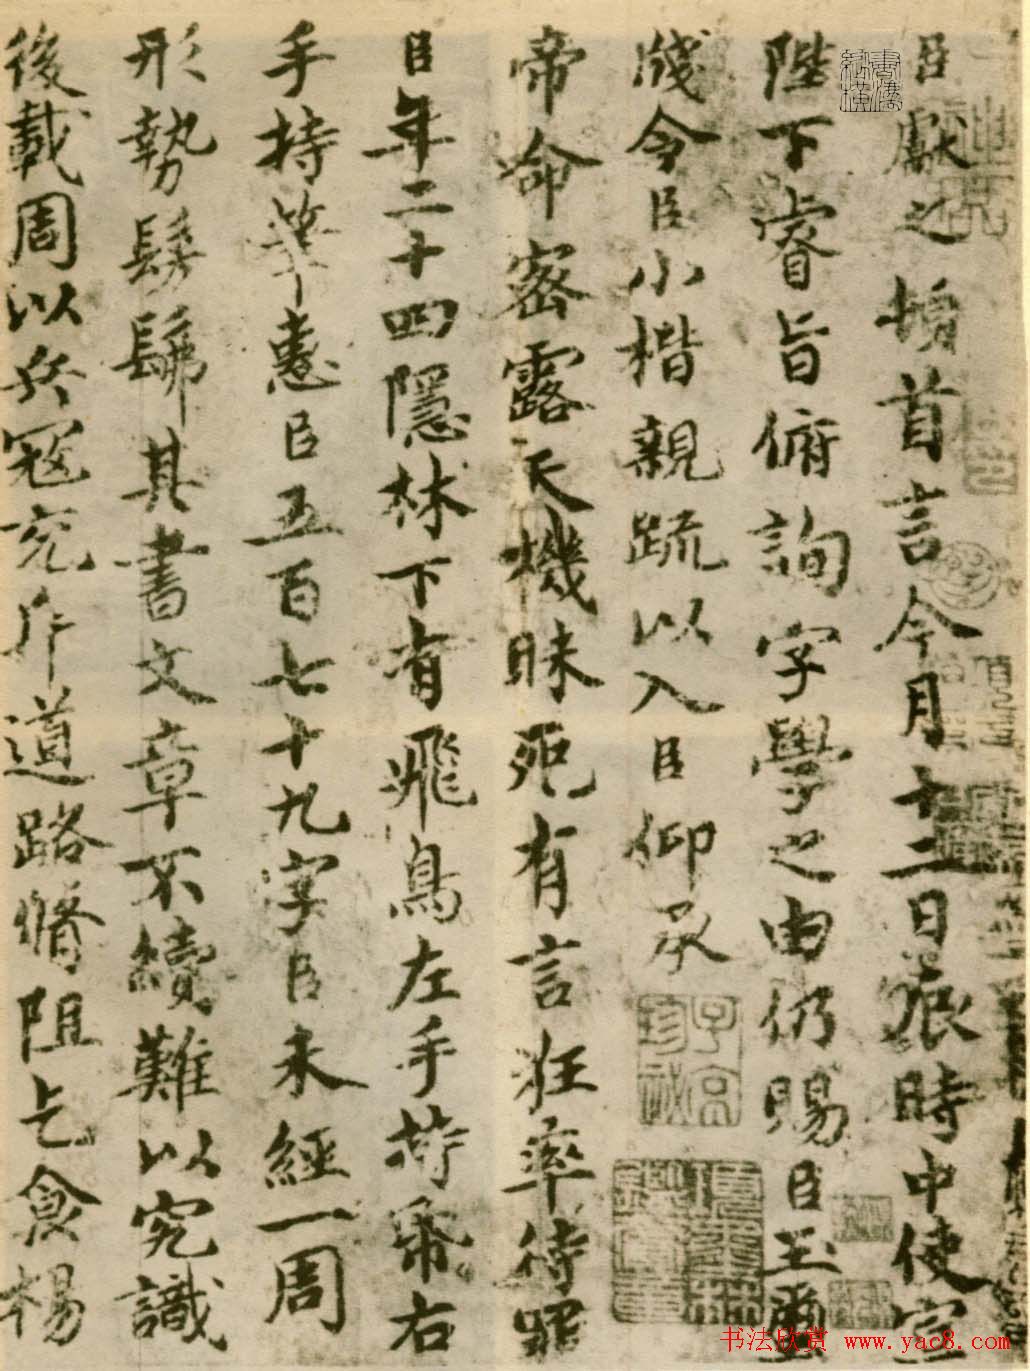 臣獻之頓首言今月十二日辰時中使宣
陛下睿旨俯詢字學之由仍賜臣玉璽
牋令臣小楷親疏以入臣仰承
帝命密露天機昧死有言狂率待罪
臣年二十四隱林下有飛鳥左手持帋右
手持筆惠臣五百七十九字臣未經一周
形勢髣髴其書文章不續難以究識
後載周以兵寇充斥道路脩阻乞食楊
书法欣赏 www.yac8.com